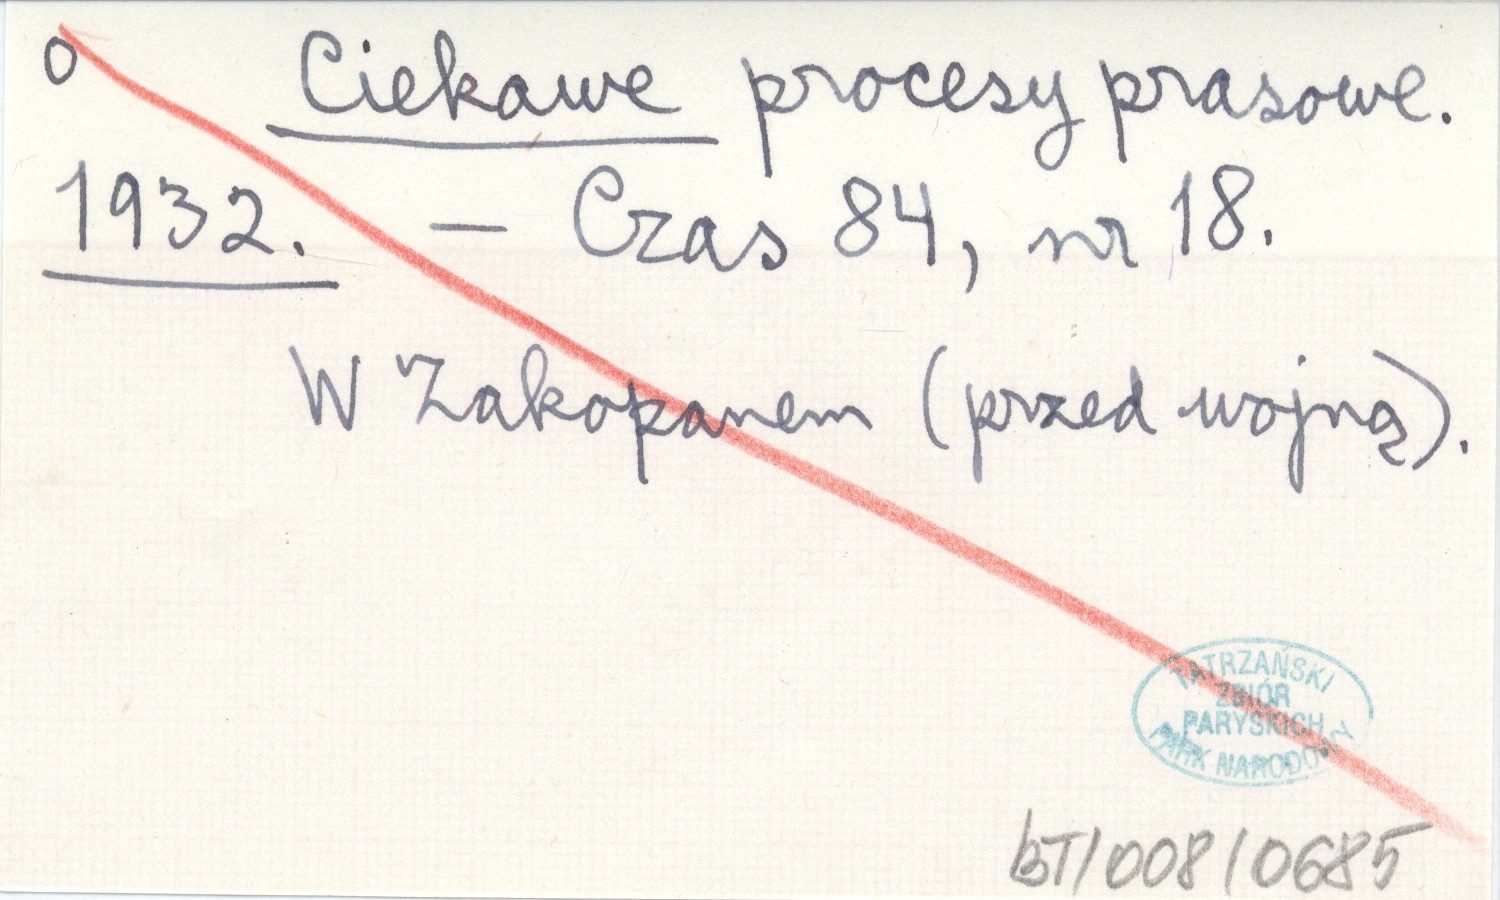 o Ciekawe procesy prasowe.
1932. — Czas 84, nr 18.
W Zakopanem (przed wojną).
TATRZAŃSKI
ZBIÓR
PARYSKICH
PARK NARODOWY
bT/008/0685